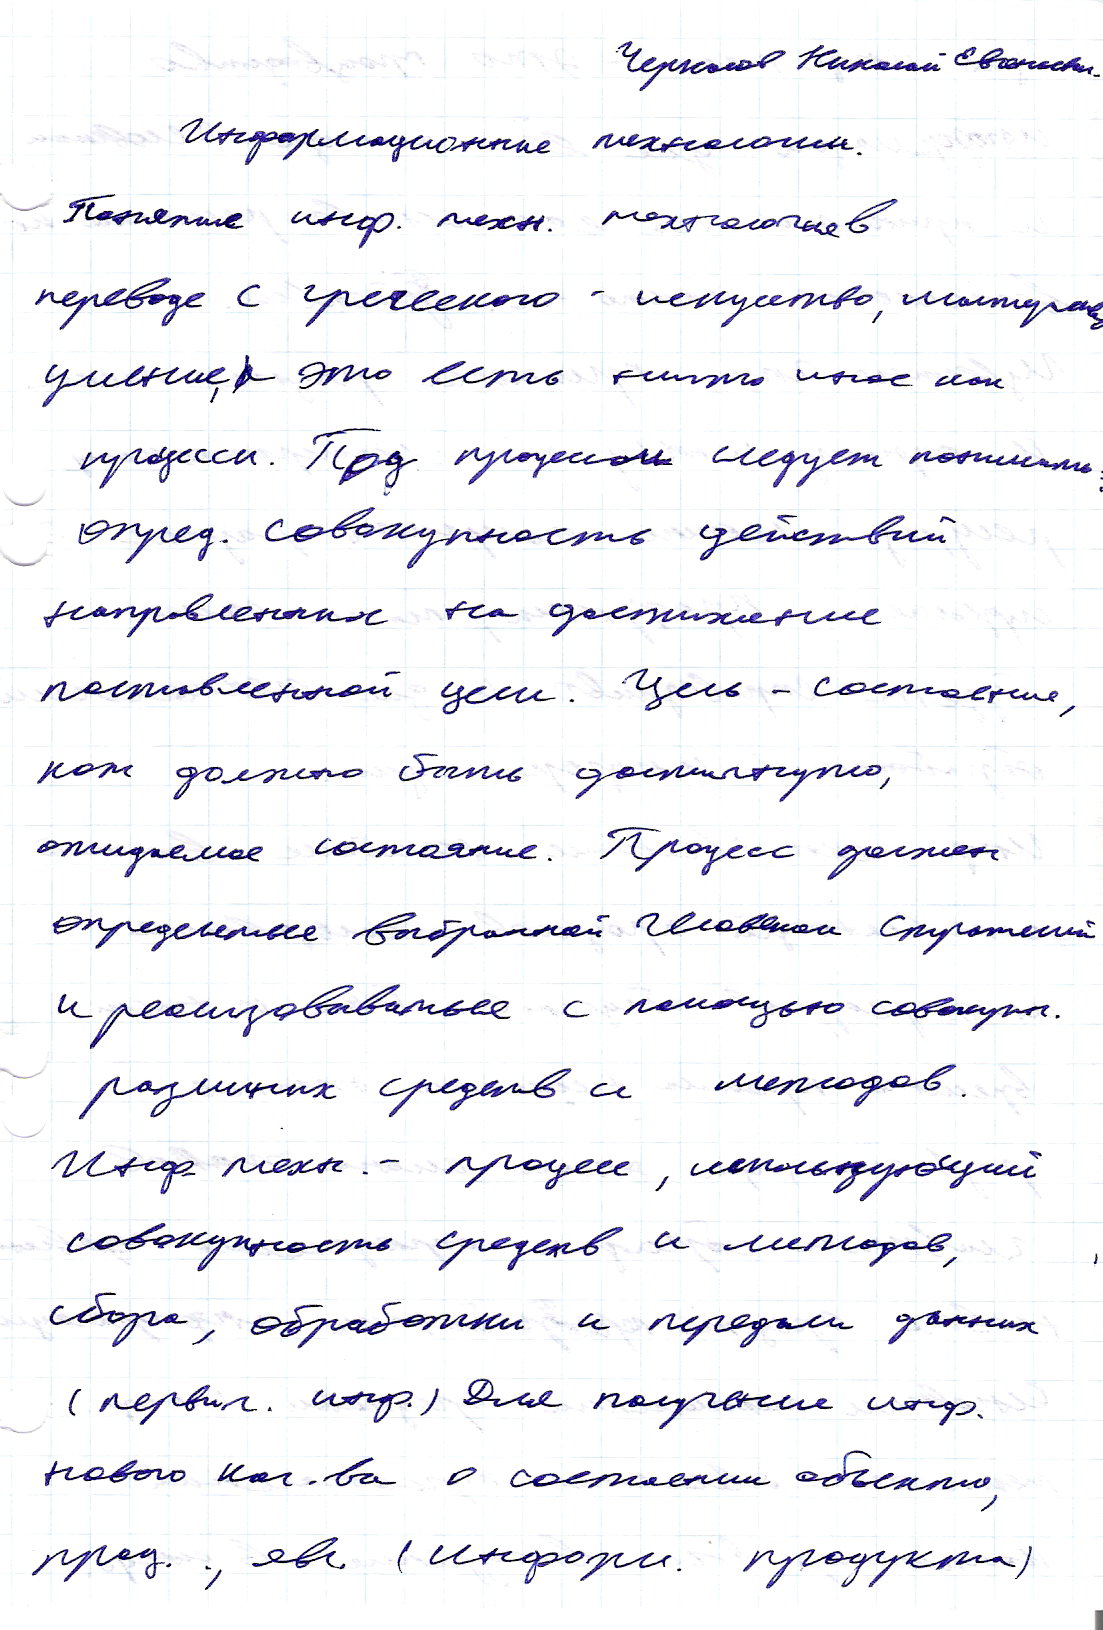 Черкасов Николай Евгеньевич.
Информационные технологии.
Понятие инф. техн. технология в
переводе с греческого - искусство, мастерство,
умение, это есть ничто иное как
процессы. Под процессом следует понимать:
опред. совокупность действий
направленных на достижение
поставленной цели. Цель - состояние,
кот должно быть достигнуто,
ожидаемое состояние. Процесс должен
определяться выбранной человеком стратегией
и реализовываться с помощью совокупн.
различных средств и методов.
Инф техн. - процесс, использующий
совокупность средств и методов,
сбора, обработки и передачи данных
(первич. инф.) Для получение инф.
нового кач. ва о состоянии объекта,
проц. ., явл. (информ. продукта)